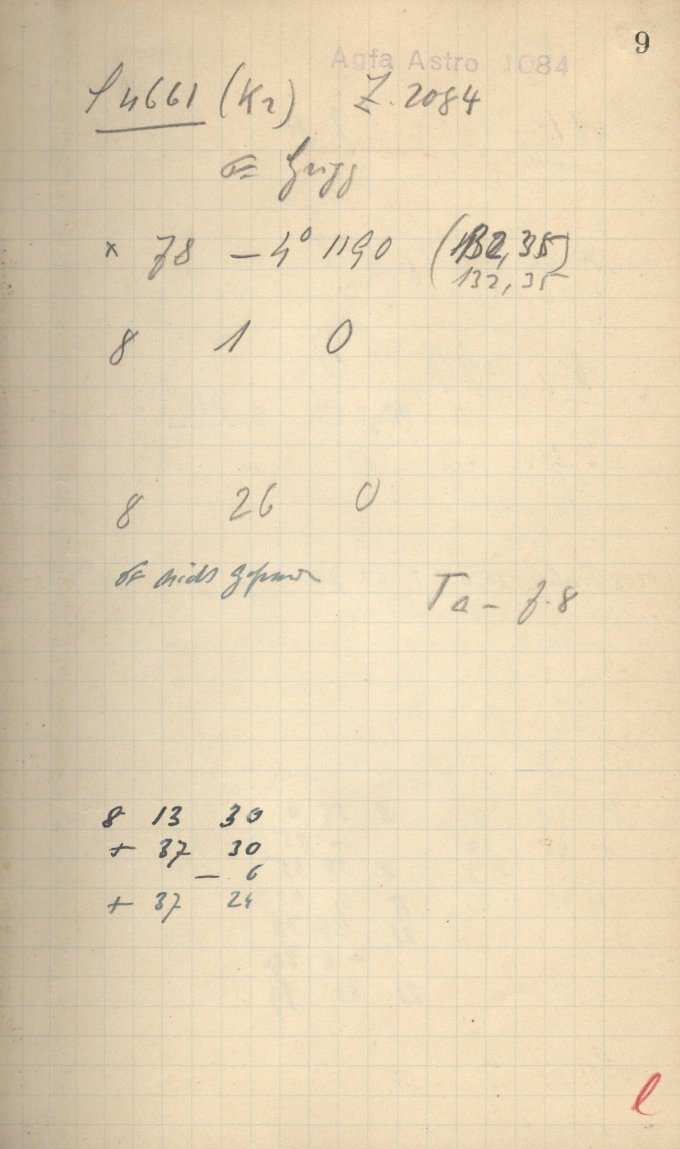 9
Agfa Astro 1084
4661 (K2) Z. 2084
Grigg
× 78 – 4° 1190 (132,35)
132,35
8 1 0
8 26 0
nicht
Ta –
8 13 30
+ 37 30
– 6
+ 37 24
l